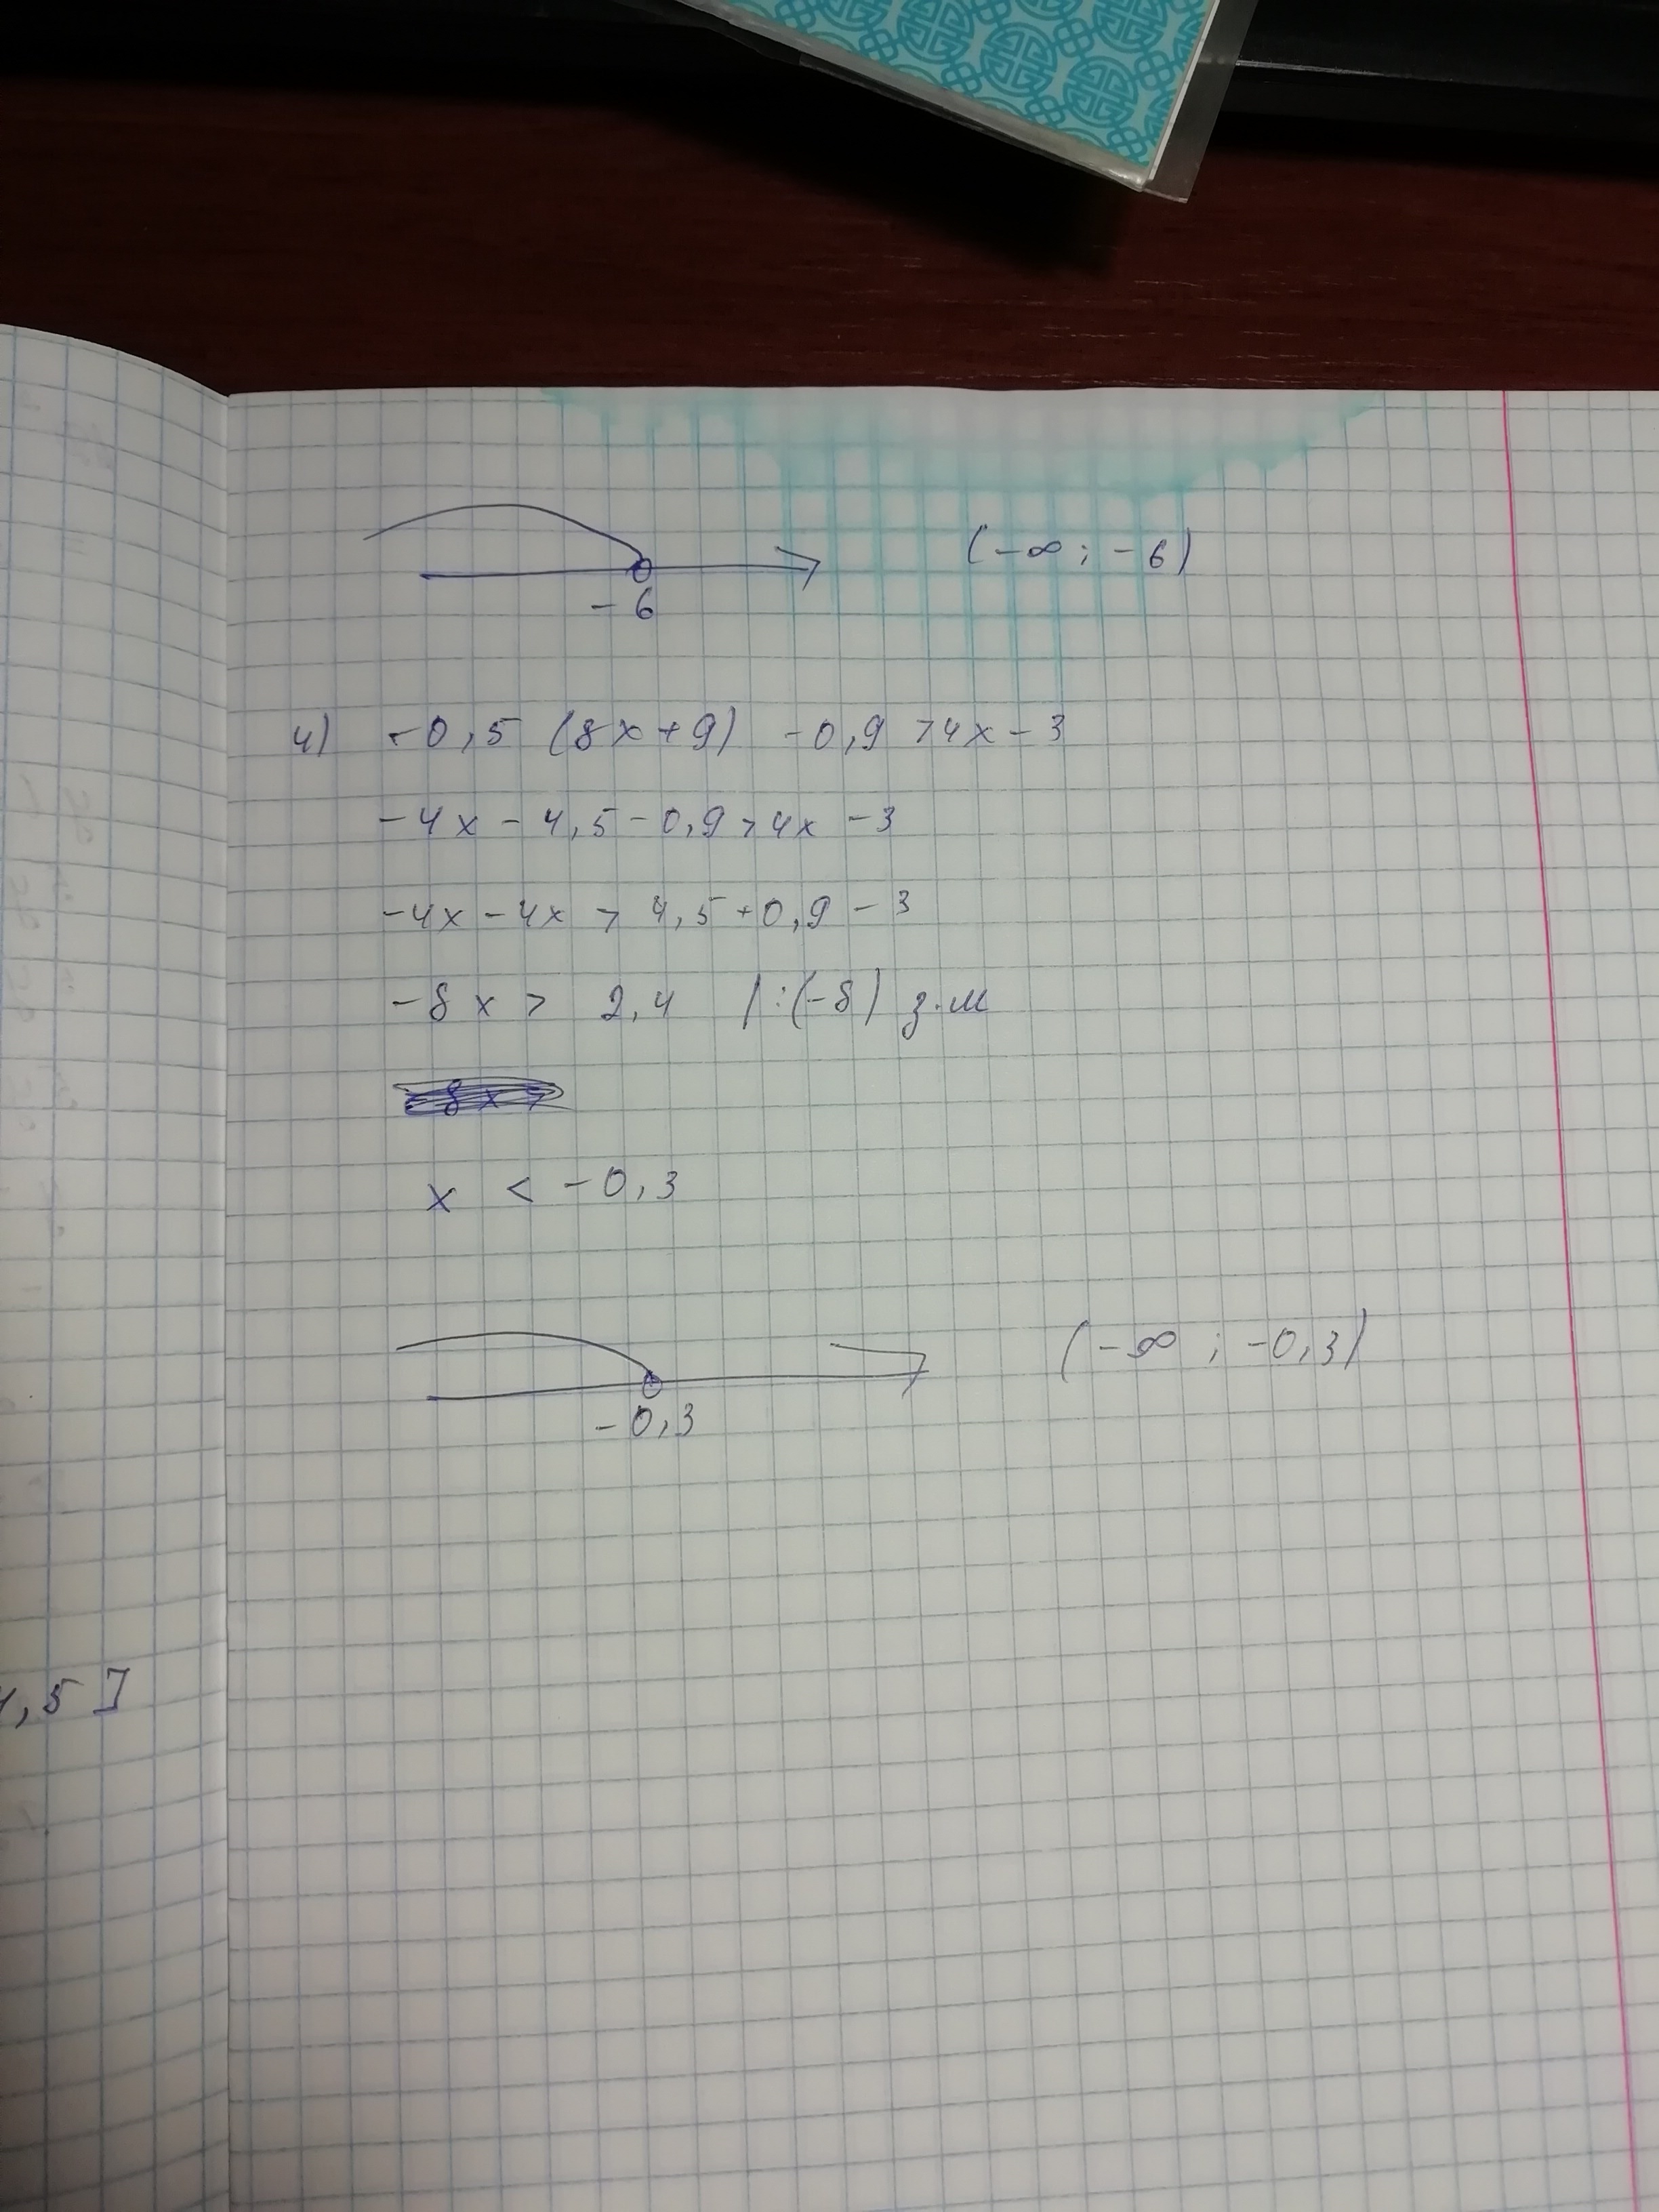 (-∞; -6)
-6
4) -0,5 (8x+9) -0,9 > 4x-3
-4x-4,5-0,9 > 4x-3
-4x-4x > 4,5+0,9-3
-8x > 2,4 |:(-8) з.м
x < -0,3
(-∞; -0,3)
-0,3
,5]